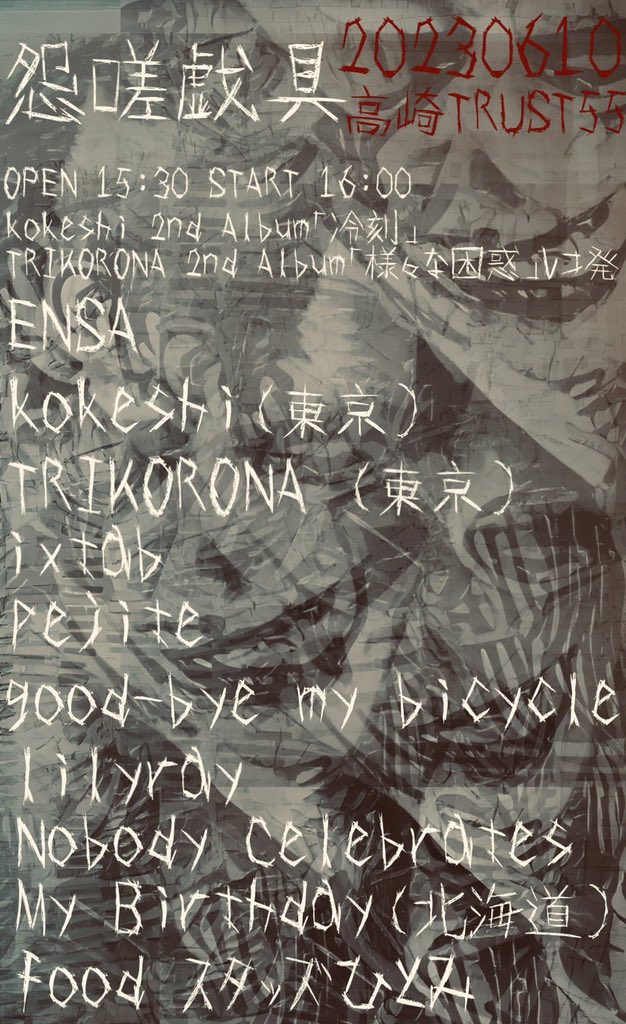 怨嗟戯具
20230610
高崎TRUST55
OPEN 15:30 START 16:00
kokeshi 2nd Album「冷刻」
TRIKORONA 2nd Album「様々な困惑」レコ発
ENSA
kokeshi(東京)
TRIKORONA (東京)
ixtab
pejite
good-bye my bicycle
lilyray
Nobody Celebrates
My Birthday(北海道)
Food スタッズひとみ